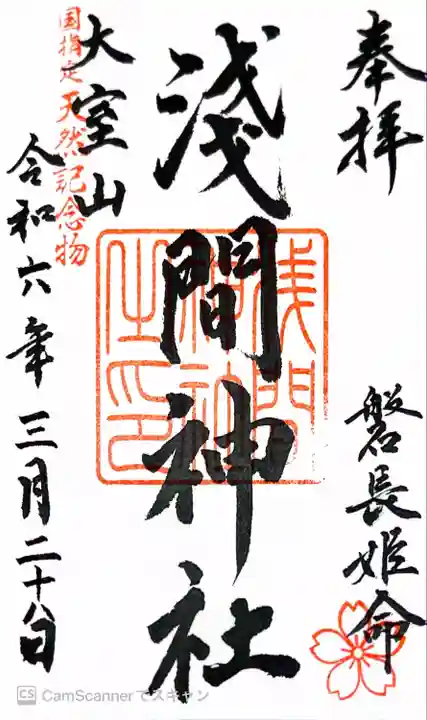 奉拝
磐長姫命
淺間神社
浅間神社之印
大室山
国指定天然記念物
令和六年三月二十八日
CS CamScannerでスキャン